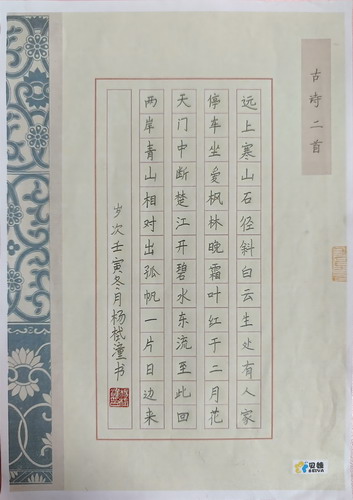 古诗二首
远上寒山石径斜白云生处有人家
停车坐爱枫林晚霜叶红于二月花
天门中断楚江开碧水东流至此回
两岸青山相对出孤帆一片日边来
岁次壬寅冬月杨栻潼书